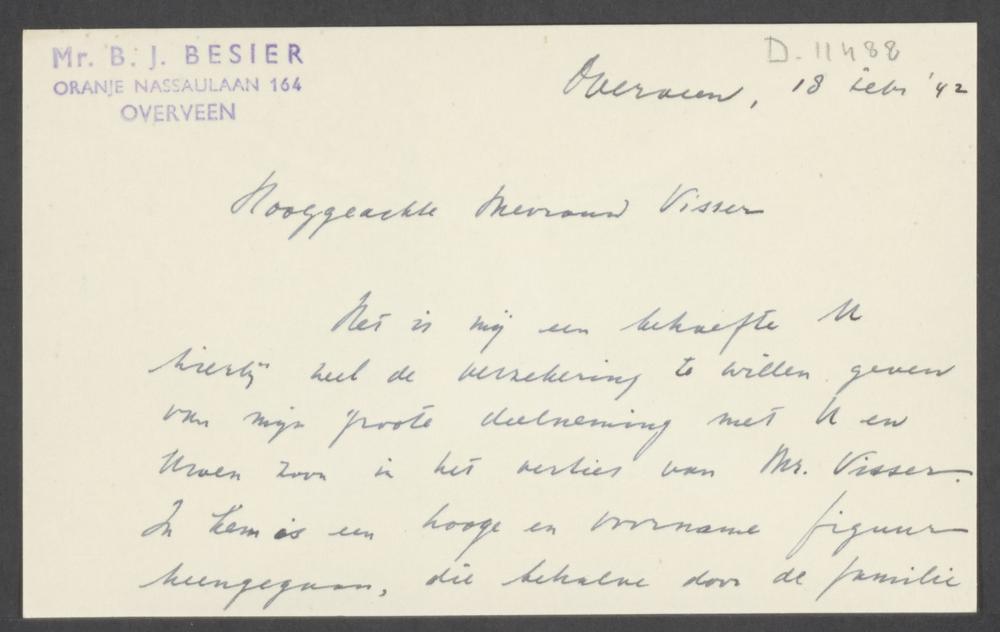 Mr. B. J. BESIER
ORANJE NASSAULAAN 164
OVERVEEN
D. 11488
Overveen, 18 Febr '42
Hooggeachte Mevrouw Visser
Het is mij een behoefte U
hierbij wel de verzekering te willen geven
van mijn groote deelneming met U en
Uwen zoon in het verlies van Mr. Visser.
In hem is een hooge en voorname figuur
heengegaan, die behalve door de familie